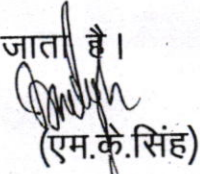 जाता है।
(एम.के.सिंह)